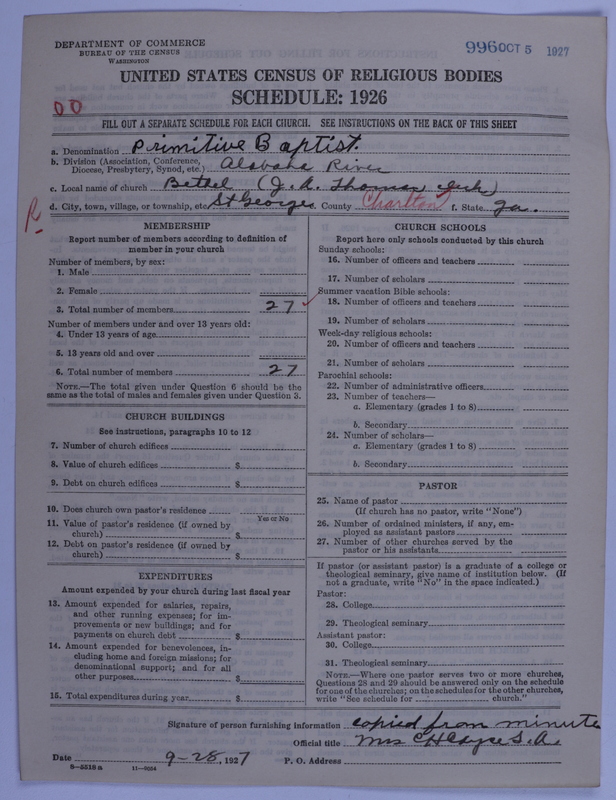 DEPARTMENT OF COMMERCE
BUREAU OF THE CENSUS
WASHINGTON
996 OCT 5 1927
UNITED STATES CENSUS OF RELIGIOUS BODIES
SCHEDULE: 1926
00
FILL OUT A SEPARATE SCHEDULE FOR EACH CHURCH. SEE INSTRUCTIONS ON THE BACK OF THIS SHEET
a. Denomination Primitive Baptist
b. Division (Association, Conference, Diocese, Presbytery, Synod, etc.) Alabaha River
c. Local name of church Bethel (J. A. Thomas
d. City, town, village, or township, etc. St Georges County Charlton f. State Ga.
R
MEMBERSHIP
Report number of members according to definition of
member in your church
Number of members, by sex:
1. Male
2. Female
3. Total number of members 27
Number of members under and over 13 years old:
4. Under 13 years of age
5. 13 years old and over
6. Total number of members 27
NOTE.—The total given under Question 6 should be the
same as the total of males and females given under Question 3.
CHURCH BUILDINGS
See instructions, paragraphs 10 to 12
7. Number of church edifices
8. Value of church edifices $
9. Debt on church edifices $
10. Does church own pastor's residence
Yes or No
11. Value of pastor's residence (if owned by
church) $
12. Debt on pastor's residence (if owned by
church) $
EXPENDITURES
Amount expended by your church during last fiscal year
13. Amount expended for salaries, repairs,
and other running expenses; for im-
provements or new buildings; and for
payments on church debt $
14. Amount expended for benevolences, in-
cluding home and foreign missions; for
denominational support; and for all
other purposes $
15. Total expenditures during year $
CHURCH SCHOOLS
Report here only schools conducted by this church
Sunday schools:
16. Number of officers and teachers
17. Number of scholars
Summer vacation Bible schools:
18. Number of officers and teachers
19. Number of scholars
Week-day religious schools:
20. Number of officers and teachers
21. Number of scholars
Parochial schools:
22. Number of administrative officers
23. Number of teachers—
a. Elementary (grades 1 to 8)
b. Secondary
24. Number of scholars—
a. Elementary (grades 1 to 8)
b. Secondary
PASTOR
25. Name of pastor
(If church has no pastor, write "None")
26. Number of ordained ministers, if any, em-
ployed as assistant pastors
27. Number of other churches served by the
pastor or his assistants
If pastor (or assistant pastor) is a graduate of a college or
theological seminary, give name of institution below. (If
not a graduate, write "No" in the space indicated.)
Pastor:
28. College
29. Theological seminary
Assistant pastor:
30. College
31. Theological seminary
NOTE.—Where one pastor serves two or more churches,
Questions 28 and 29 should be answered only on the schedule
for one of the churches; on the schedules for the other churches,
write "See schedule for church."
Signature of person furnishing information copied from minute
Official title Mrs C H Cayce S. A.
Date 9-28, 1927 P. O. Address
8—5518a 11—9054